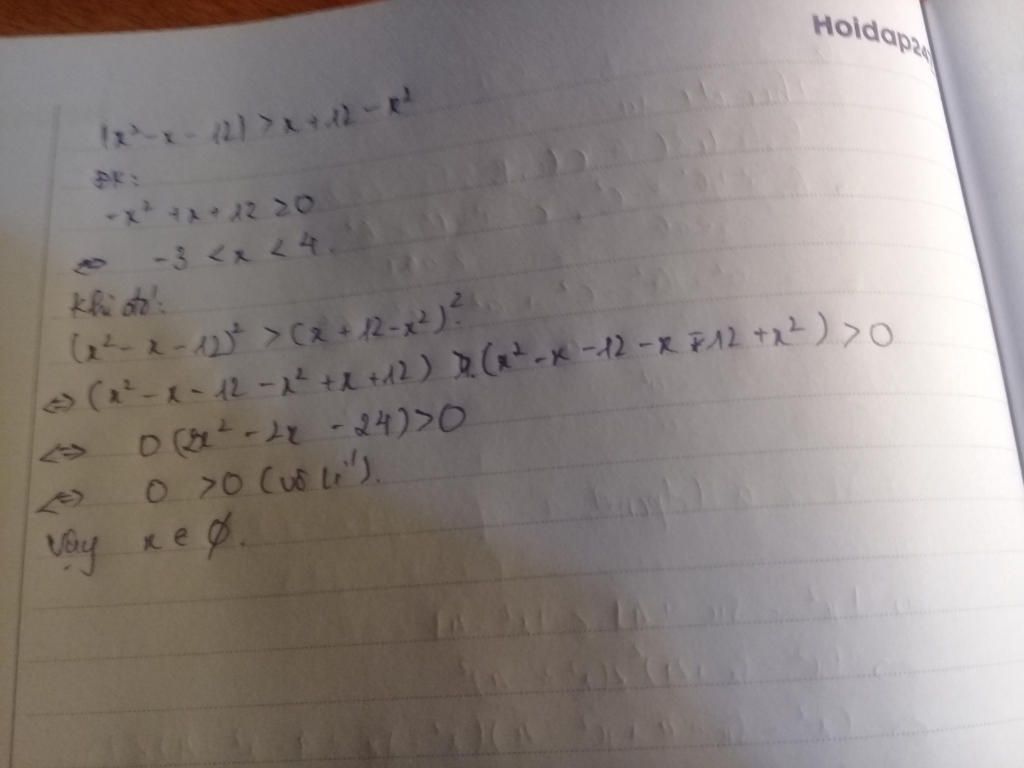 Hoidap24
|x² - x - 12| > x + 12 - x²
ĐK:
-x² + x + 12 ≥ 0
⇔ -3 < x < 4.
Khi đó:
(x² - x - 12)² > (x + 12 - x²)².
⇔ (x² - x - 12 - x² + x + 12) (x² - x - 12 - x - 12 + x²) > 0
⇔ 0 (2x² - 2x - 24) > 0
⇔ 0 > 0 (vô lí).
Vậy x ∈ ∅.